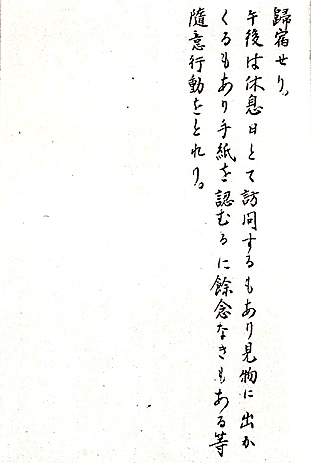 歸宿せり。
午後は休息日とて訪問するもあり見物に出か
くるもあり手紙を認むるに餘念なきもある等
隨意行動をとれり。